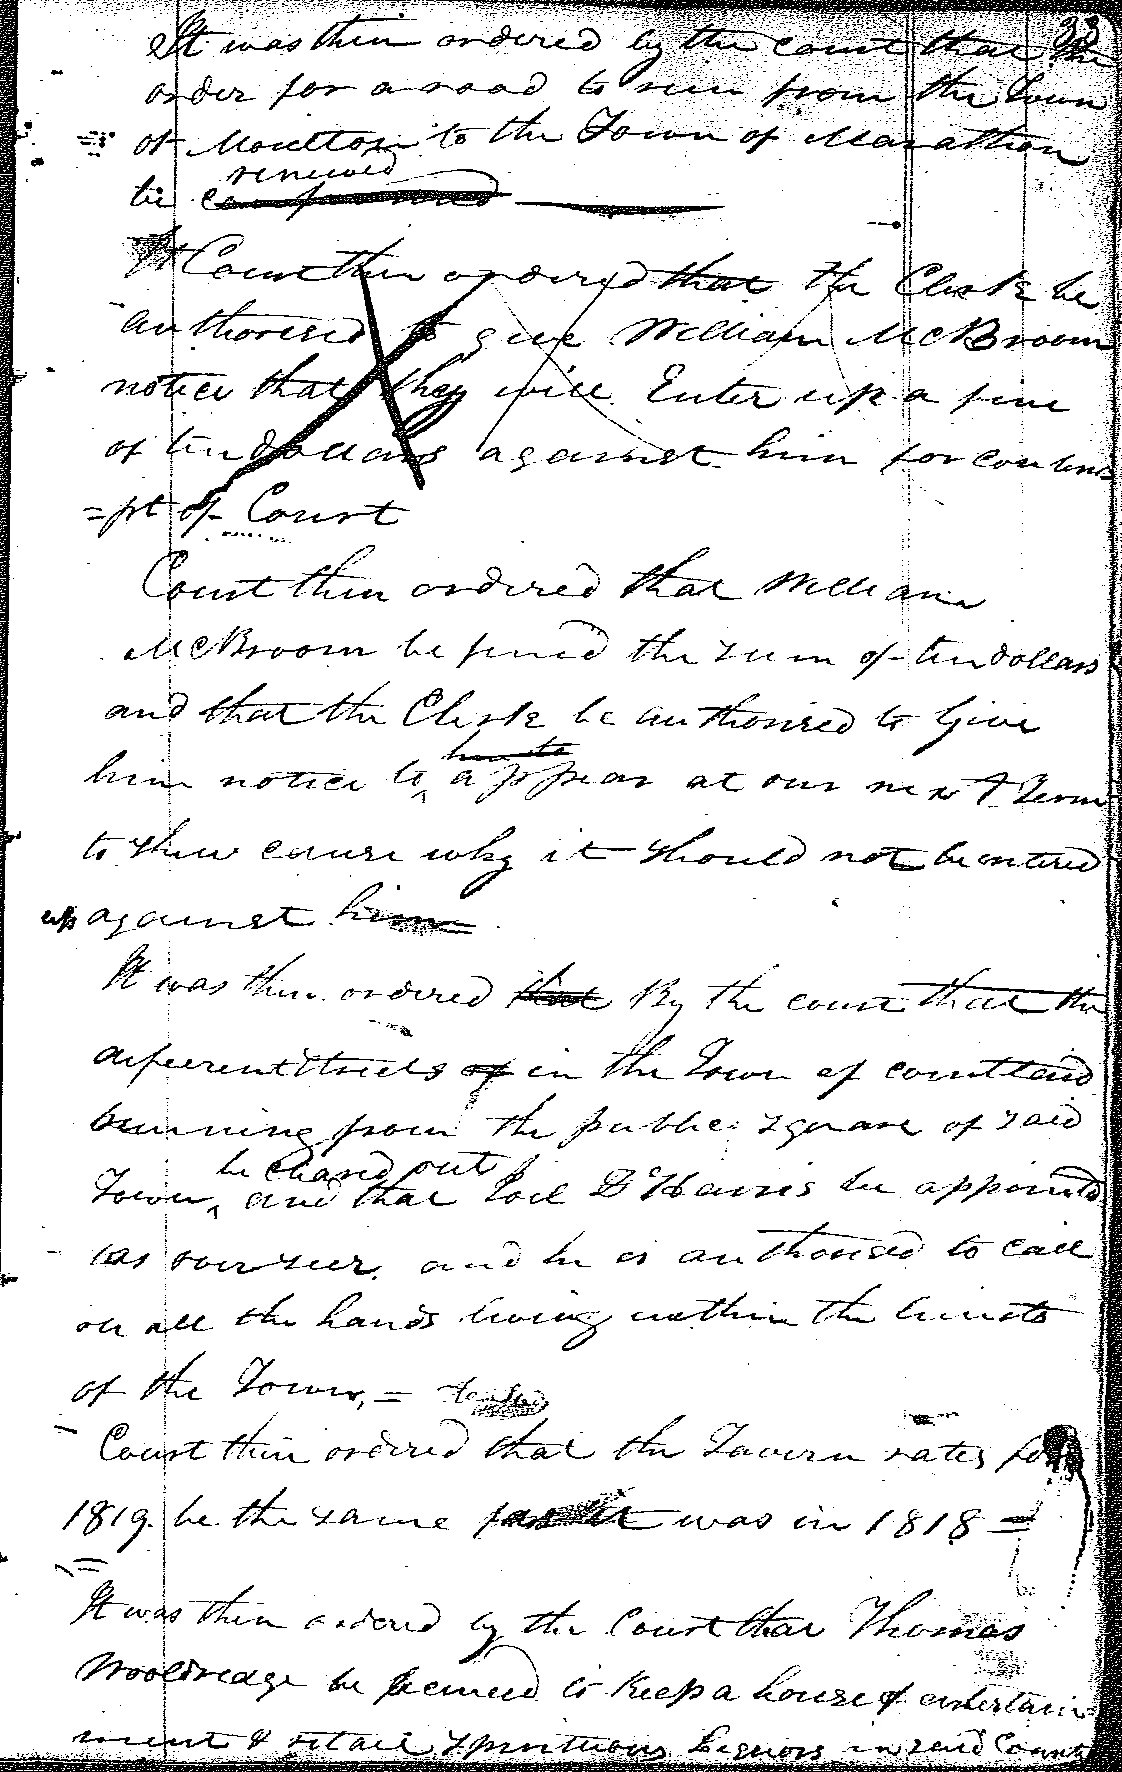 33
It was then ordered by the court that the
order for a road to run from the Town
of Moulton to the Town of Marathon
renewed
be
Court then ordered that the Clerk be
authorised to give William McBroom
notice that they will Enter up a fine
of ten dollars against him for contem
=pt of Court
Court then ordered that William
McBroom be fined the sum of ten dollars
and that the Clerk be authorised to Give
him notice to appear at our next Term
to shew cause why it should not be entered
up against him
It was then ordered that By the court that the
different streets of in the Town of Courtland
running from the public square of said
be cleared out
Town, and that Joel D Harris be appointed
as overseer. and he is authorised to call
on all the hands living within the limits
of the Town, =
Court then ordered that the Tavern rates for
1819. be the same as it was in 1818 =
It was then ordered by the Court that Thomas
Wooldredge be licenced to keep a house of entertain
ment & retail spirituous Liquors in said County